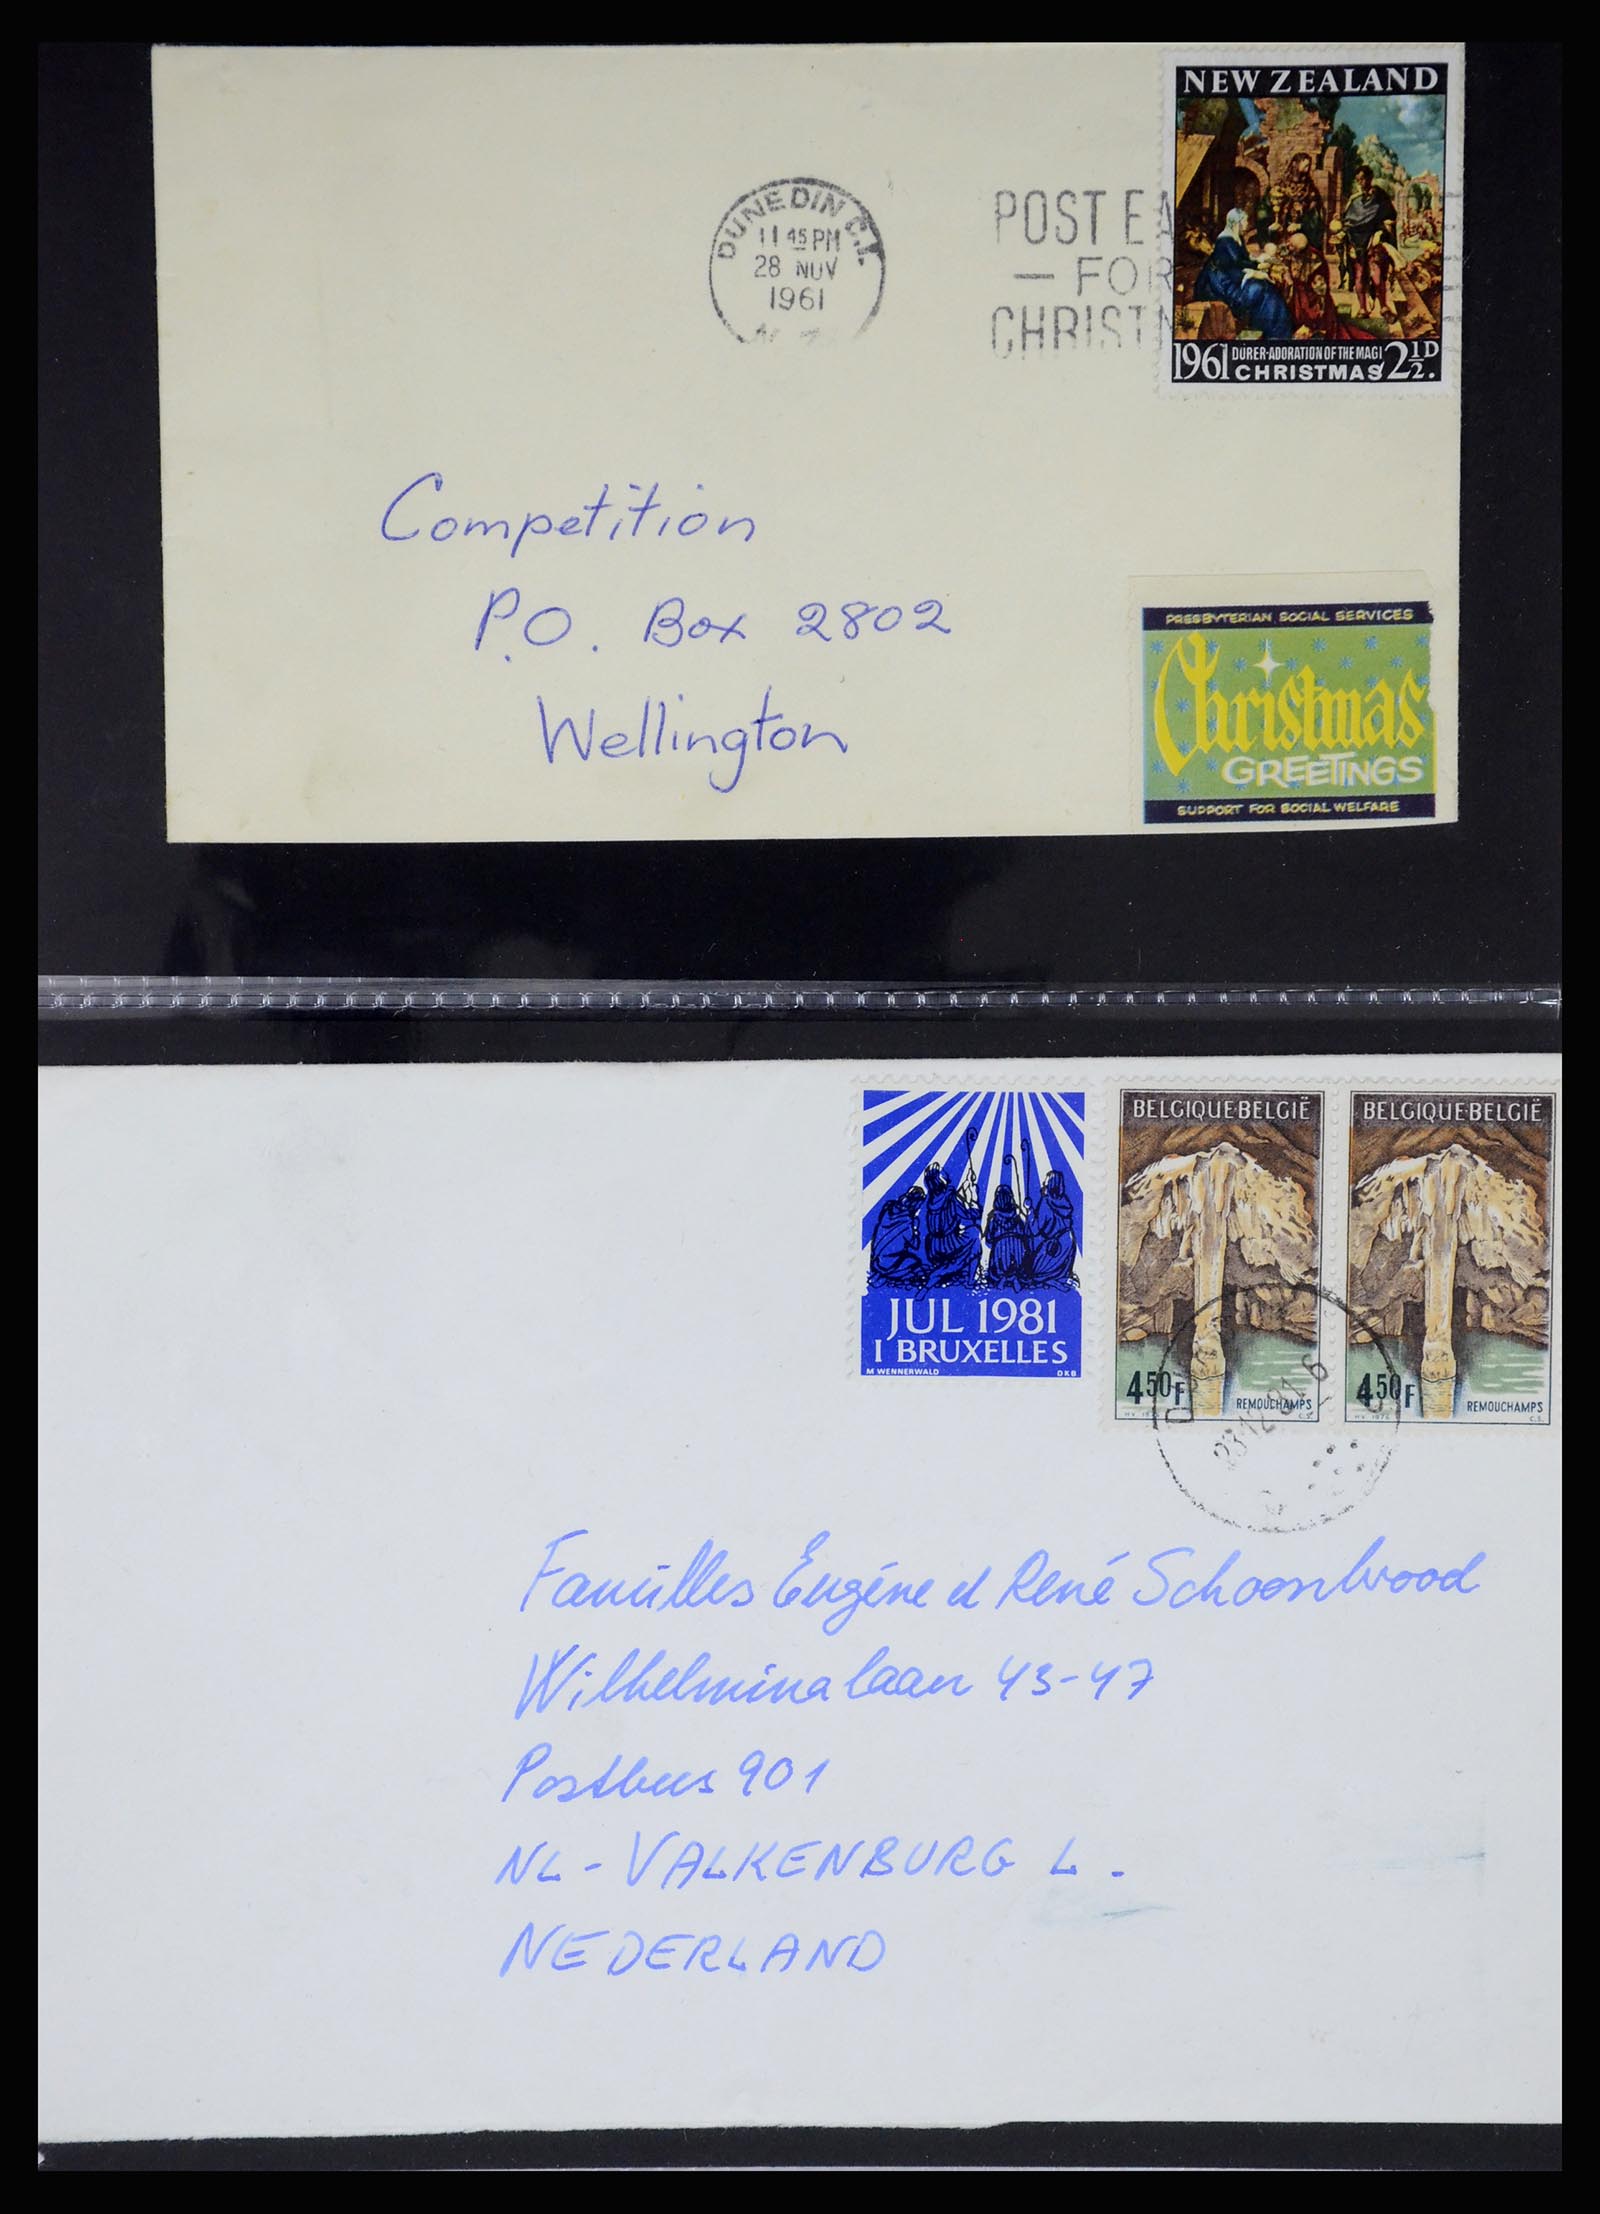 NEW ZEALAND
DUNEDIN C.1.
11 45 PM
28 NOV
1961
N.Z.
POST EA
— FOR
CHRISTM
1961 DÜRER-ADORATION OF THE MAGI 2½D.
CHRISTMAS
Competition
P.O. Box 2802
Wellington
PRESBYTERIAN SOCIAL SERVICES
Christmas
GREETINGS
SUPPORT FOR SOCIAL WELFARE
JUL 1981
I BRUXELLES
M WENNERWALD DKB
BELGIQUE·BELGIË
4 50 F
REMOUCHAMPS
HV. 1976 C.S.
BELGIQUE·BELGIË
4 50 F
REMOUCHAMPS
HV. 1976 C.S.
23-12-81 6
Familles Eugéne et René Schoonbrood
Wilhelminalaan 43-47
Postbus 901
NL - VALKENBURG L.
NEDERLAND